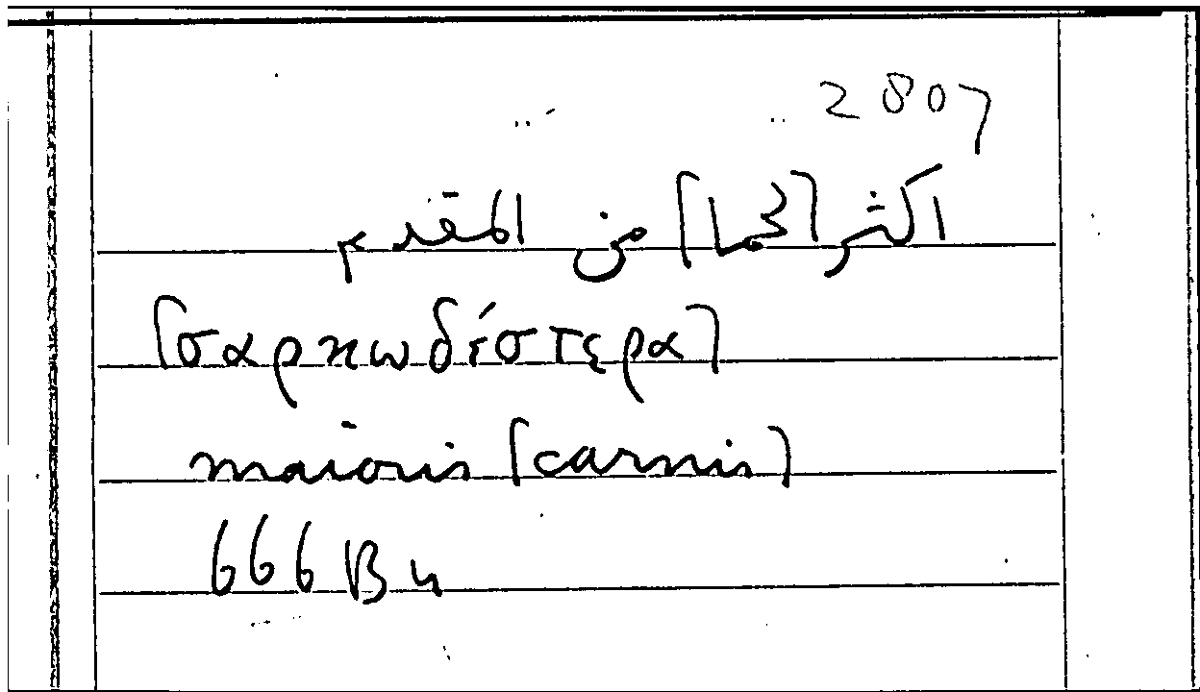 2807
اكثر [لحما] من المقدم
[σαρκωδέστερα]
maioris [carnis]
666 B 4